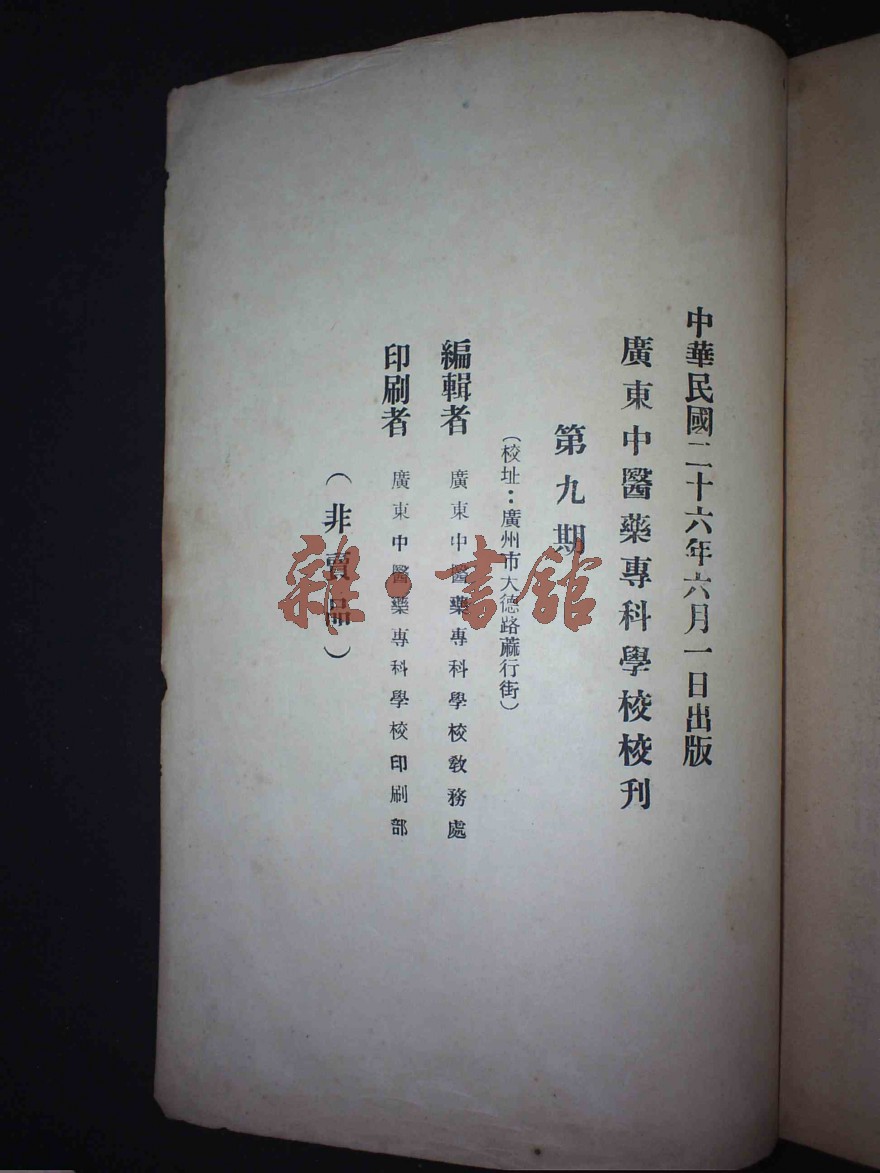 中華民國二十六年六月一日出版
廣東中醫藥專科學校校刊
第九期
（校址：廣州市大德路蔴行街）
編輯者 廣東中醫藥專科學校教務處
印刷者 廣東中醫藥專科學校印刷部
（非賣品）
雜·書館